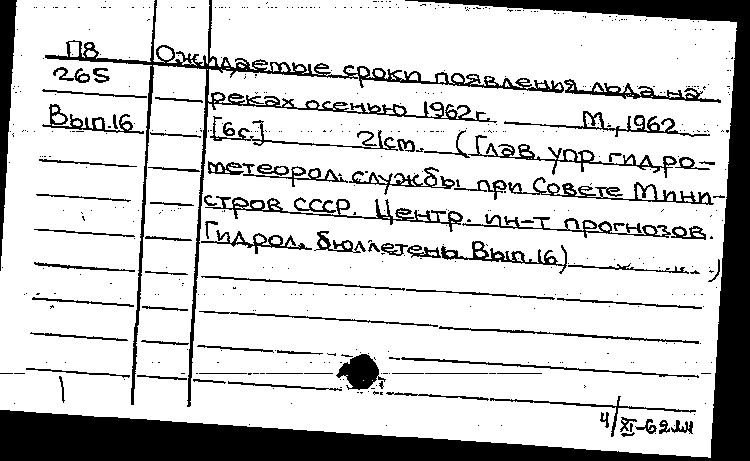 П8 Ожидаемые сроки появления льда на
265 реках осенью 1962г. М., 1962
Вып.16 [6с.] 21cm. (Глав. упр. гидро-
метеорол. службы при Совете Мини-
стров СССР. Центр. ин-т прогнозов.
Гидрол. бюллетень Вып.16)
4/XI-62